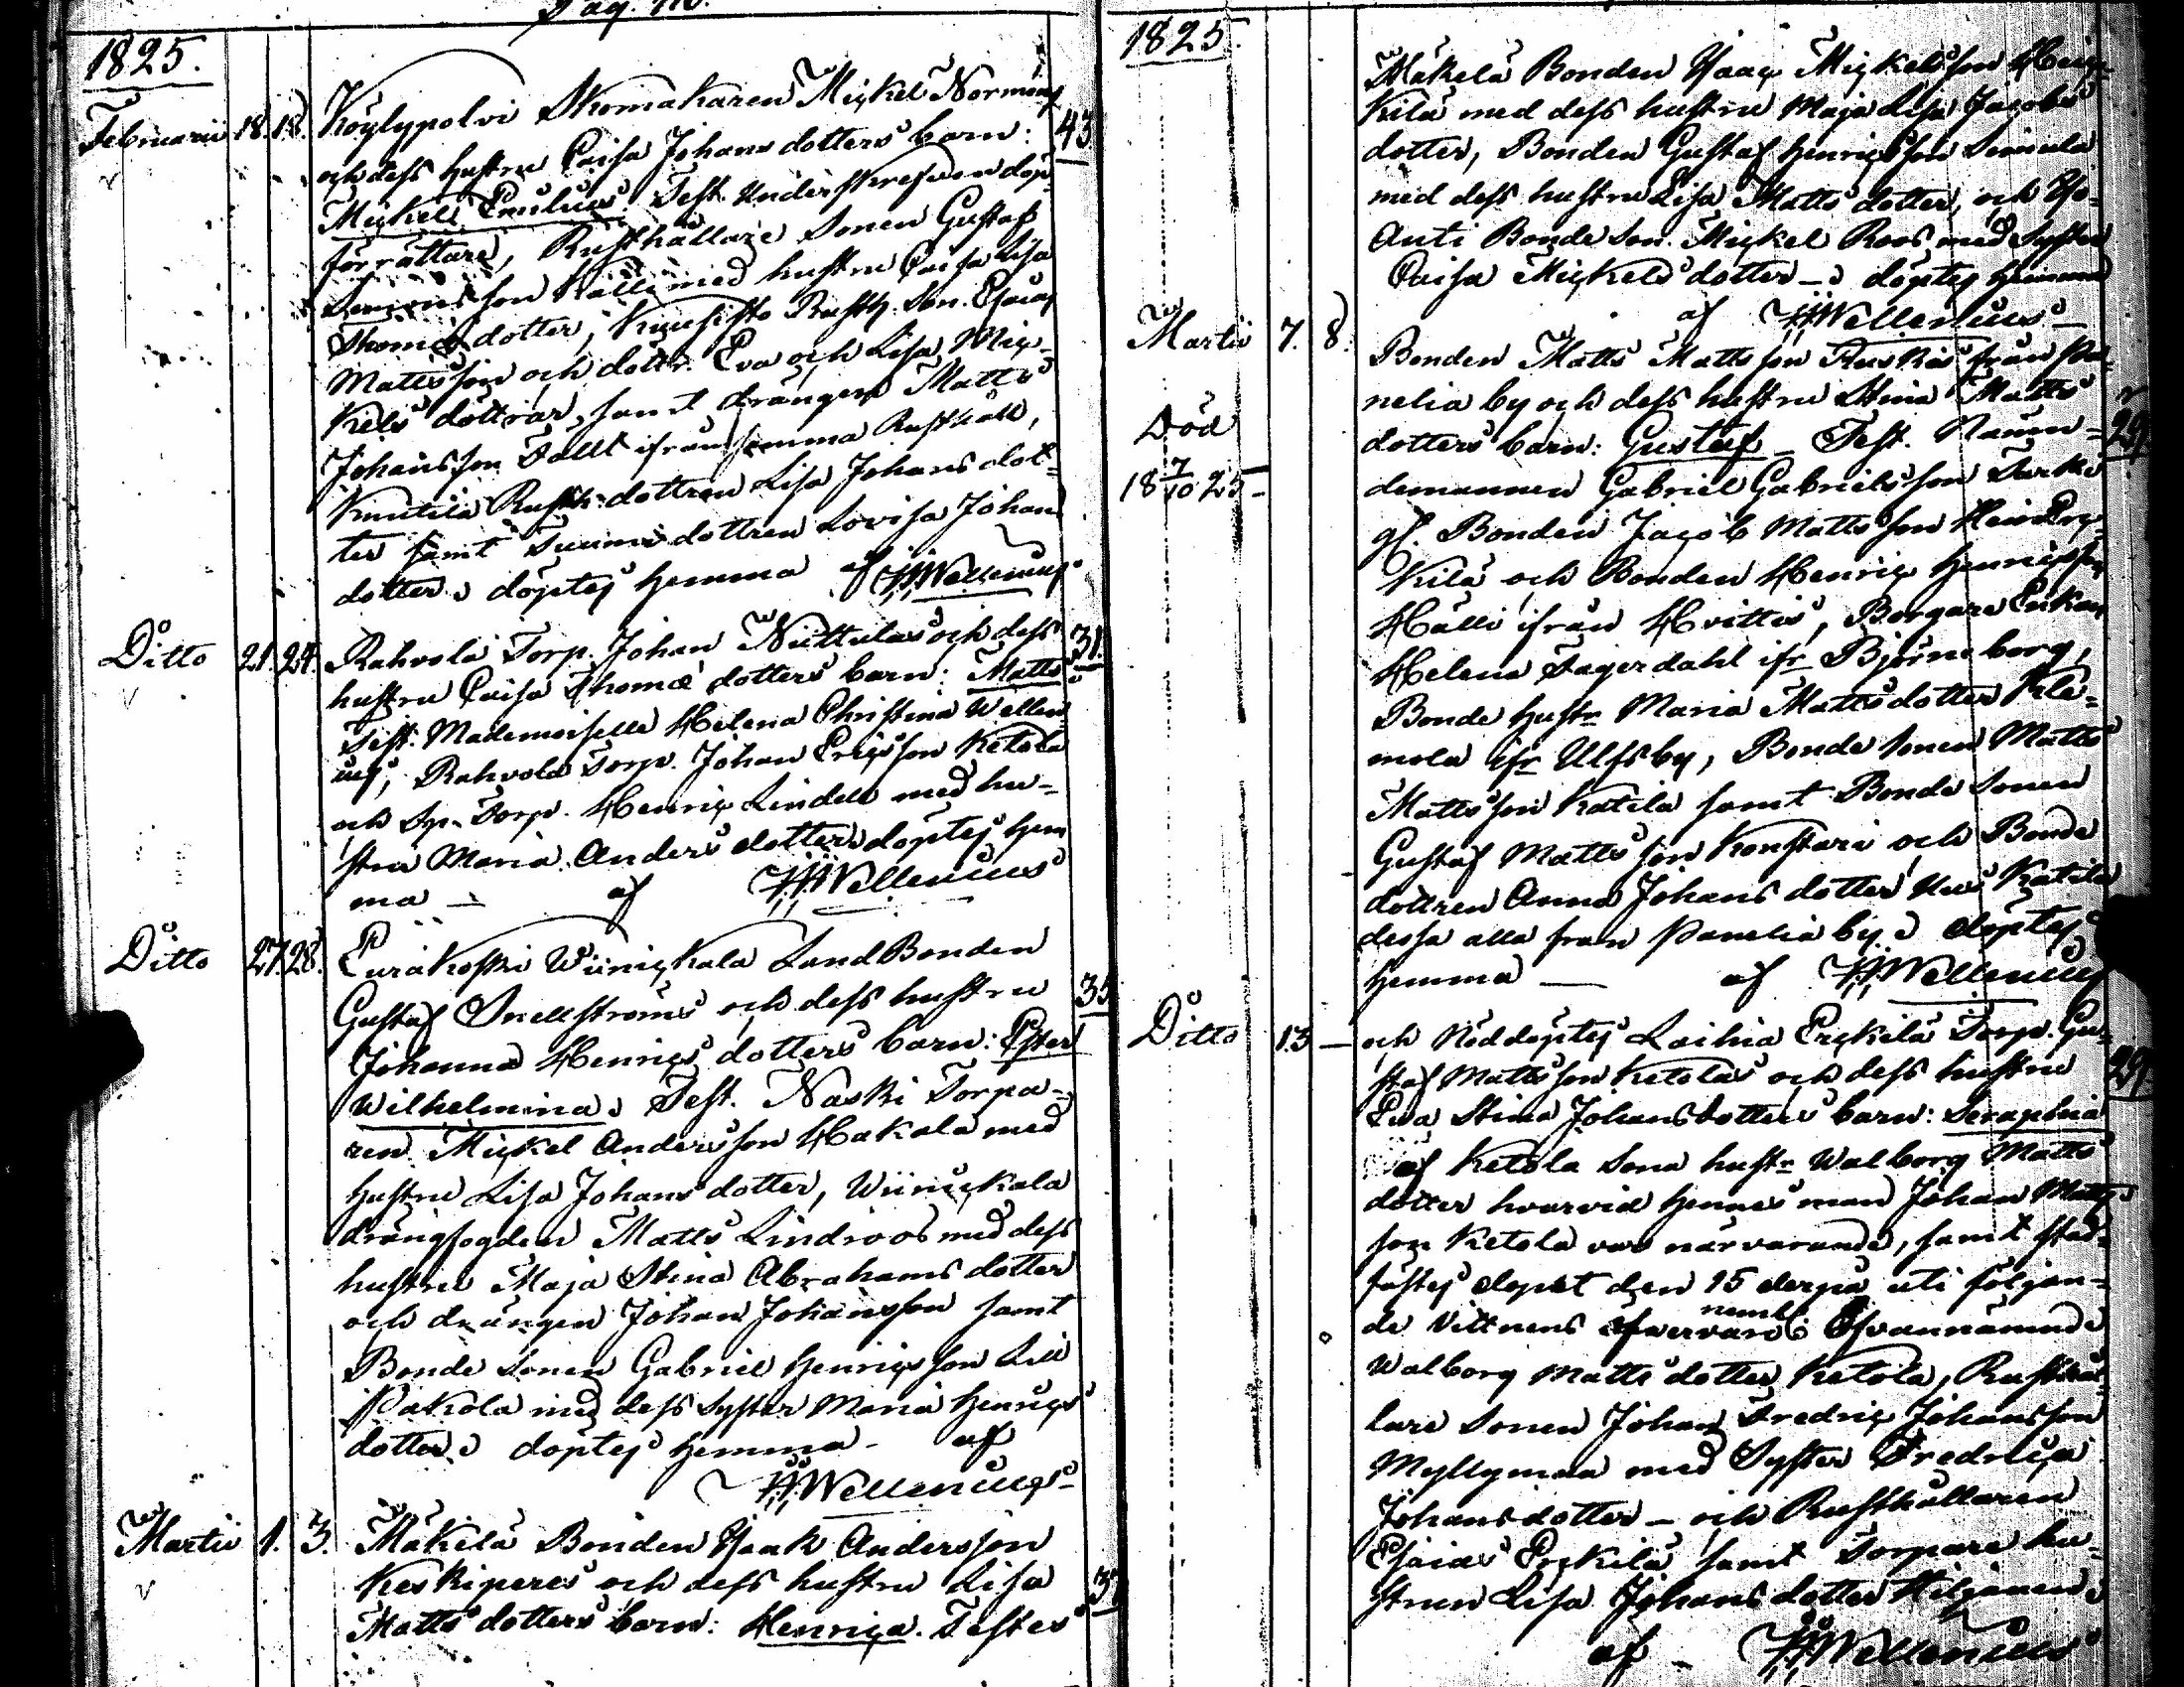 Pag. 110.
1825.
Februarii 18. 18. Köylypolvi Skomakaren Mickel Normens 43
och dess hustru Caisa Johansdotters barn:
Mickel Emilius. Test. Underskrefven döp-
förrättare, Rusthållare Sonen Gustaf
Simonsson Källi med hustru Caisa Lisa
Thomædotter, Kuusisto Rusth. Son. Esaias
Mattsson och dottr. Eva och Lisa Mic-
kels döttrar, samt drängen Matts
Johansson Fallt ifrån samma Rusthåll,
Knutila Rusth: dottren Lisa Johans dot-
ter samt dottren Lovisa Johans
dotter; döptes hemma af HHWellenius.
Ditto 21. 24. Rahvola Torp. Johan Niittulas och dess 31.
hustru Caisa Thomæ dotters barn: Matts
Test: Mademoiselle Helena Christina Wellen
ius, Rahvola Torp. Johan Ericsson Ketola
och Sp. Torp. Henric Lindell med hu-
stru Maria Anders dotter; döptes hem
ma — af HHWellenius
Ditto 27. 28. Eurakoski Wiinickala LandBonden
Gustaf Snellströms och dess hustru 35
Johanna Henrics dotters barn: Ester
Wilhelmina; Test. Naski Torpa-
ren Mickel Andersson Hakala med
hustru Lisa Johans dotter, Wiinickala
drängfogden Matts Lindroos med dess
hustru Maja Stina Abrahams dotter
och drängen Johan Johansson samt
Bonde Sonen Gabriel Henricsson Lill
Pakola med dess Syster Maria Henrics
dotter; döptes hemma — af
HHWellenius
Martii 1. 3. Mäkilä Bonden Isaak Andersson
Keskiperes och dess hustru Lisa 37
Matts dotters barn: Henrica. Testes
1825.
Mäkelä Bonden Isaac Mickelsson Hei-
kilä med dess hustru Maja Lisa Jacobs
dotter, Bonden Gustaf Henricsson Simula
med dess hustru Lisa Matts dotter, och
Anti Bonde Son. Mickel Roos med Syster
Caisa Mickels dotter —; döptes hemma
af HHWellenius —
Martii 7. 8. Bonden Matts Mattsson Ruskas från Pa-
nelia by och dess hustru Stina Matts
Död dotters barn: Gustaf — Test. Nämn- 29
18 7/10 25 — demannen Gabriel Gabrielsson
gl. Bonden Jacob Mattsson
kilä och Bonden Henric Henricsson
Hälli ifrån Hvittis, Borgare Enkan
Helena Fagerdahl ifr Björneborg,
Bonde hustr Maria Mattsdotter Kle-
mola ifr Ulfsby, Bonde Sonen Matts
Mattsson Katila samt Bonde Sonen
Gustaf Mattsson Konstari och Bonde
dottren Anna Johans dotter Uus Katila
dessa alla från Panelia by; döptes
hemma — af HHWellenius
Ditto 13 — och Nöddöptes Laihia Erckilä Torp. Gu-
staf Mattsson Ketolas och dess hustru 29
Eva Stina Johansdotters barn: Seraphia
af Ketola Sona hustr Walborg Matts
dotter hvarvid hennes man Johan Matts-
son Ketola var närvarande, samt stad-
fästes dopet den 15 derpå uti följan-
de Vittnens öfvervaro nembl: Ofvannämnde
Walborg Matts dotter Ketola, Rusthål-
lare Sonen Johan Fredric Johansson
Myllymaa med Syster Fredrica
Johansdotter — och Rusthållaren
Esaias Erckilä samt Torpare hu-
strun Lisa Johans dotter Hiljanen;
af — HHWellenius